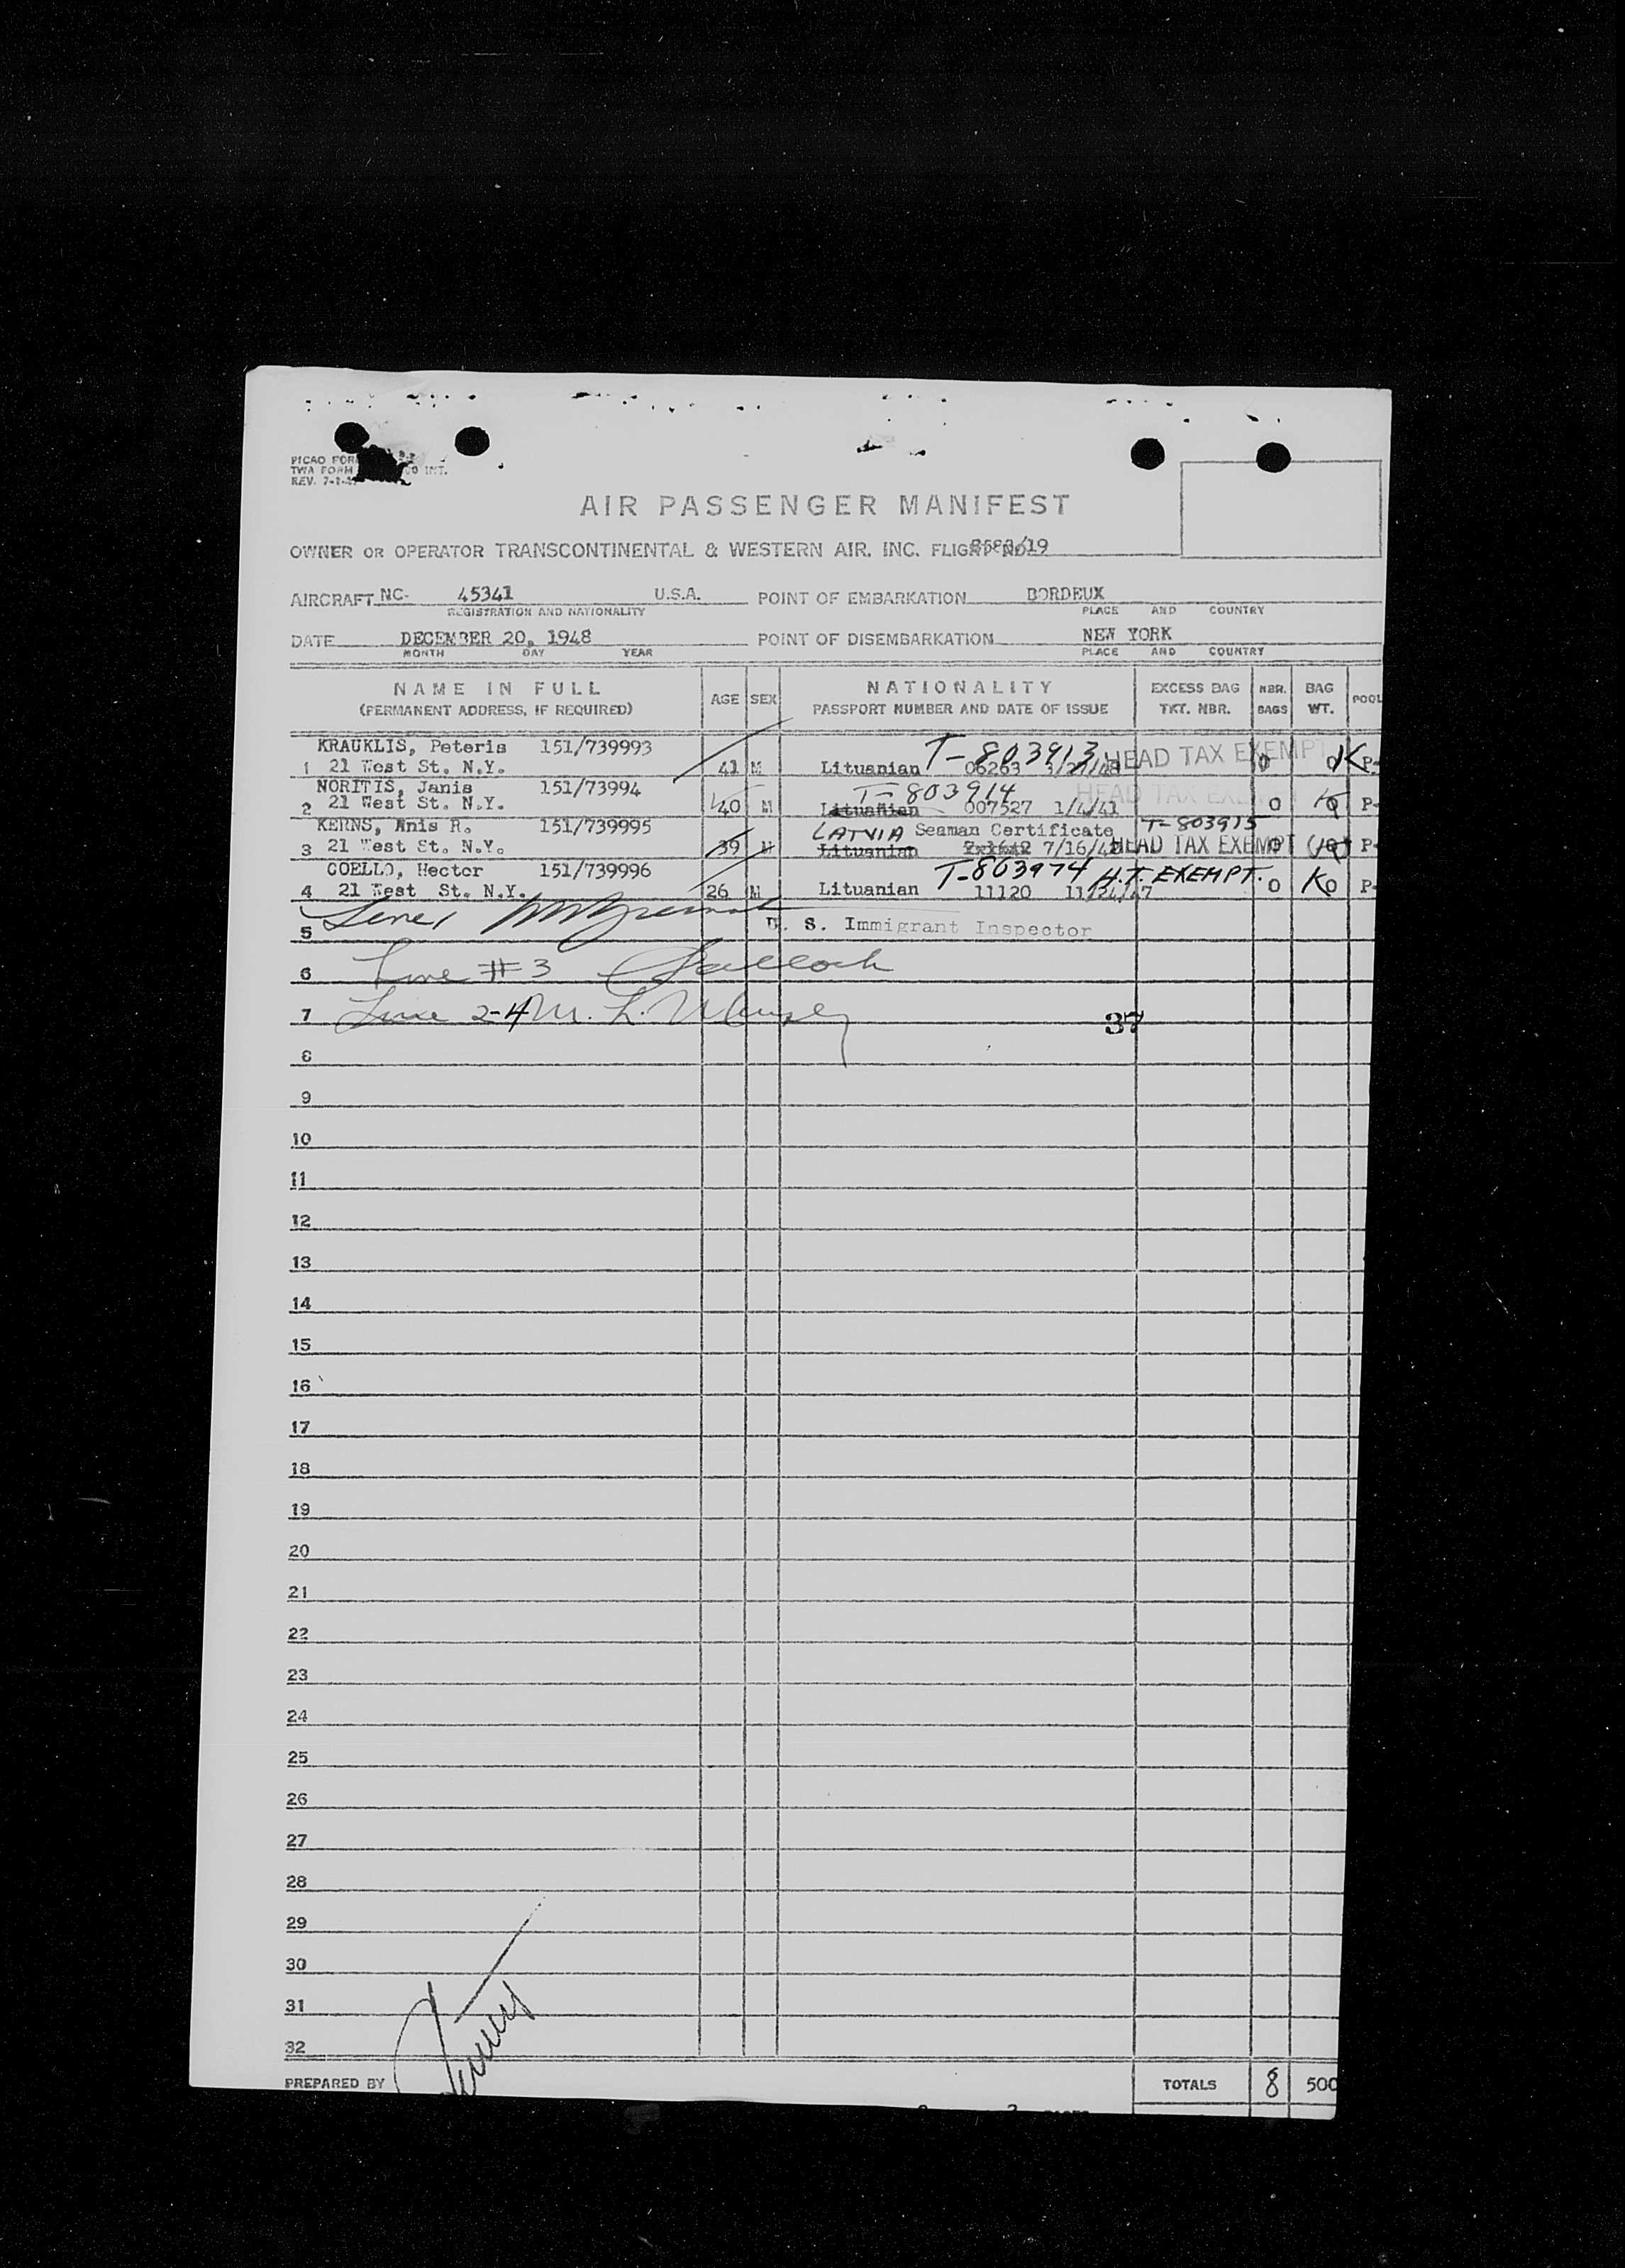 PICAO FOR
TWA FORM 00 INT.
REV. 7-1-4
AIR PASSENGER MANIFEST
OWNER OR OPERATOR TRANSCONTINENTAL & WESTERN AIR, INC. FLIGHT NO. /19
AIRCRAFT NC- 45341 U.S.A. POINT OF EMBARKATION BORDEUX
REGISTRATION AND NATIONALITY PLACE AND COUNTRY
DATE DECEMBER 20, 1948 POINT OF DISEMBARKATION NEW YORK
MONTH DAY YEAR PLACE AND COUNTRY
NAME IN FULL AGE SEX NATIONALITY EXCESS BAG NBR. BAG POOL
(PERMANENT ADDRESS, IF REQUIRED) PASSPORT NUMBER AND DATE OF ISSUE TKT. NBR. BAGS WT.
KRAUKLIS, Peteris 151/739993 T-803913 HEAD TAX EXEMPT
1 21 West St. N.Y. 41 M Lituanian 06263 0 0 K P-
NORITIS, Janis 151/73994 T-803914 HEAD TAX EXEMPT
2 21 West St. N.Y. 40 M Lituanian 007527 1/4/41 0 P-
KERNS, Anis R. 151/739995 LATVIA Seaman Certificate T-803915
3 21 West St. N.Y. 39 M Lituanian 7/16/4 HEAD TAX EXEMPT P-
COELLO, Hector 151/739996 T-803974 H.T. EXEMPT.
4 21 West St. N.Y. 26 M Lituanian 11120 11/24/47 0 K0 P-
5 Line 1 U. S. Immigrant Inspector
6 Line #3
7 Line 2-4 M. L. 37
8
9
10
11
12
13
14
15
16
17
18
19
20
21
22
23
24
25
26
27
28
29
30
31
32
PREPARED BY TOTALS 8 500